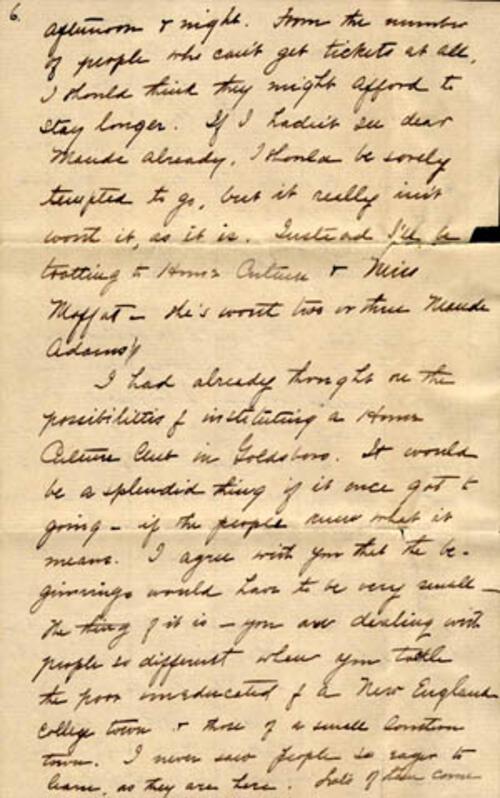 6.
afternoon & night. From the number
of people who can't get tickets at all,
I should think they might afford to
stay longer. If I hadn't see dear
Maude already, I should be sorely
tempted to go, but it really isn't
worth it, as it is. Instead I'll be
trotting to Home Culture & Miss
Moffat — He's worth two or three Maude
Adams'!
I had already thought on the
possibilities of instituting a Home
Culture Club in Goldsboro. It would
be a splendid thing if it once got to
going — if the people knew what it
means. I agree with you that the be-
ginnings would have to be very small —
the thing of it is — you are dealing with
people so different when you tackle
the poor uneducated of a New England
college town & those of a small Southern
town. I never saw people so eager to
learn, as they are here. Lots of them come